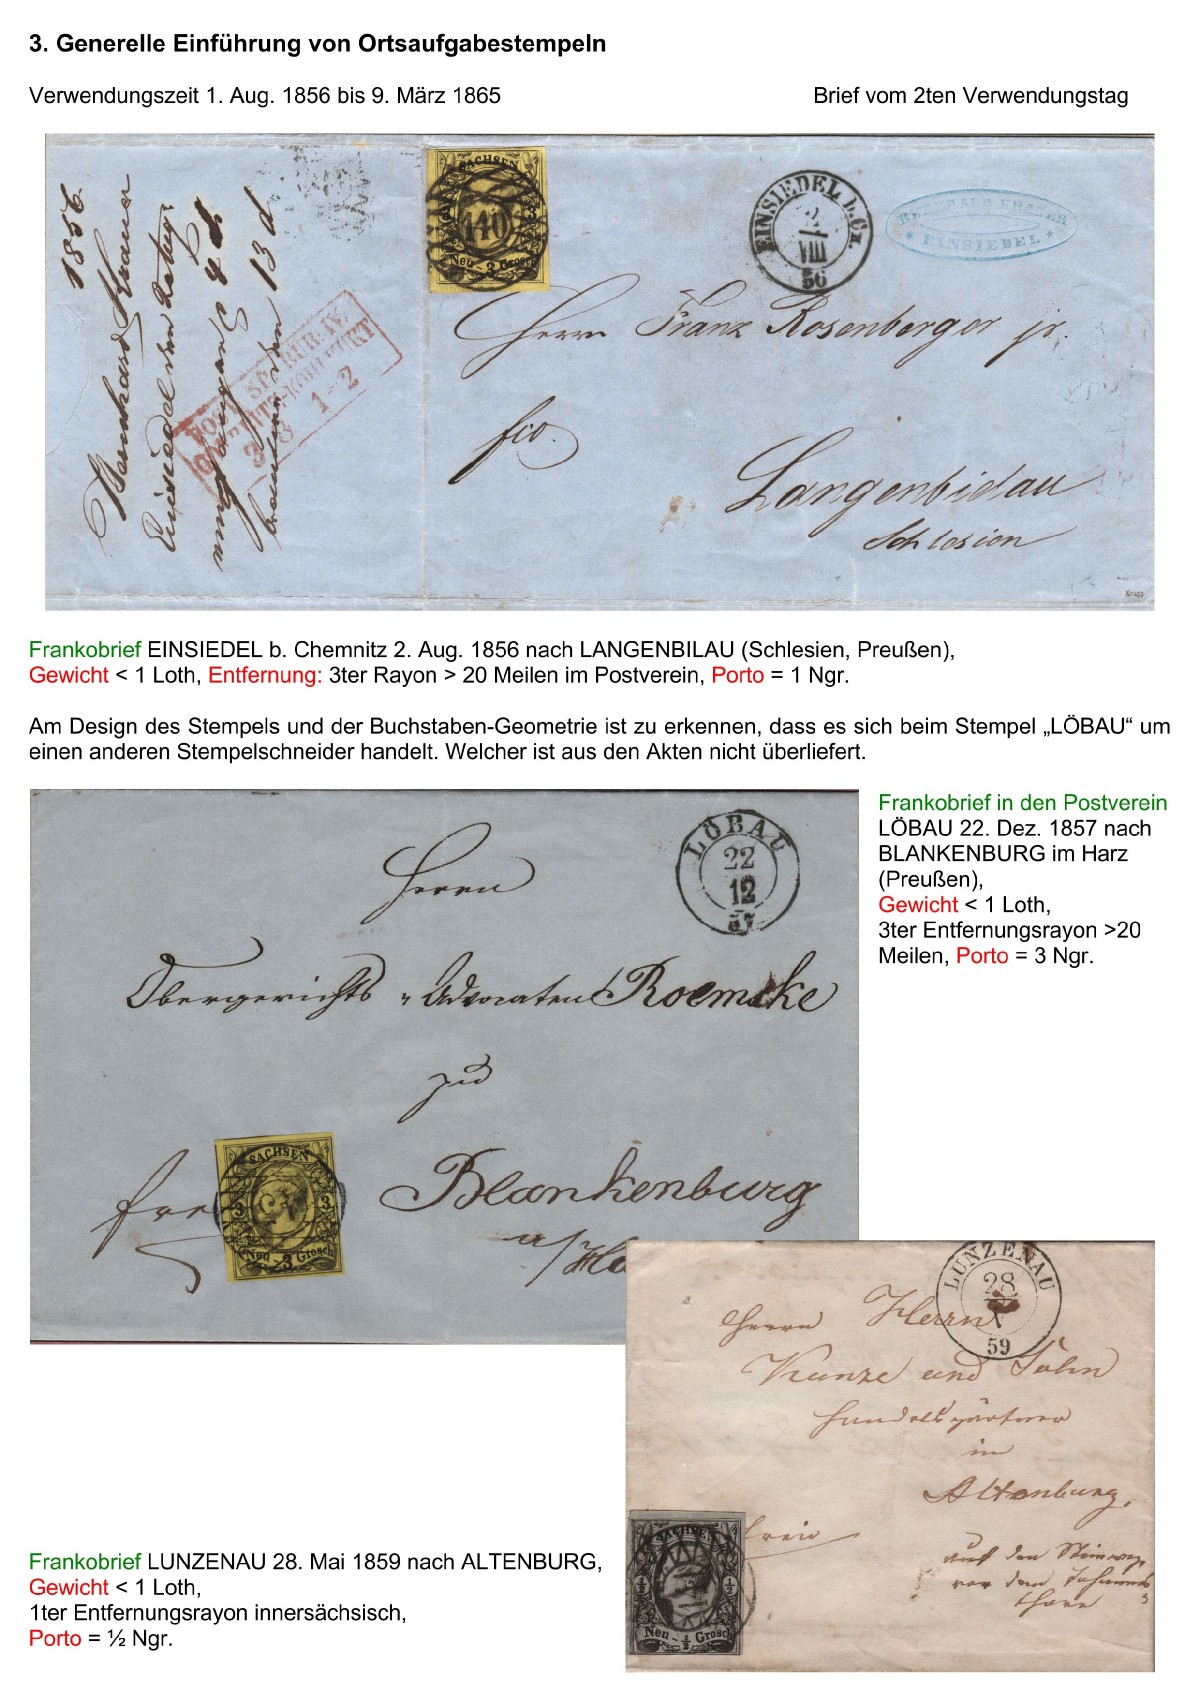 3. Generelle Einführung von Ortsaufgabestempeln
Verwendungszeit 1. Aug. 1856 bis 9. März 1865
Brief vom 2ten Verwendungstag
1856
Bernhard Kraner
Einsiedel den
13 d
POST SP. BUR. IV.
3 8 1-2
SACHSEN
3
110
Neu - 3 Grosch
EINSIEDEL b. Cz.
2
VIII
56
EINSIEDEL
Herrn Franz Rosenberger jr.
fco.
Langenbidau
Schlesien
Knapp
Frankobrief EINSIEDEL b. Chemnitz 2. Aug. 1856 nach LANGENBILAU (Schlesien, Preußen),
Gewicht < 1 Loth, Entfernung: 3ter Rayon > 20 Meilen im Postverein, Porto = 1 Ngr.
Am Design des Stempels und der Buchstaben-Geometrie ist zu erkennen, dass es sich beim Stempel „LÖBAU“ um
einen anderen Stempelschneider handelt. Welcher ist aus den Akten nicht überliefert.
LÖBAU
22
12
57
Herrn
Obergerichts-Advocaten Roemcke
zu
Blankenburg
a/Ha
SACHSEN
3 3
Neu - 3 Grosch
Frankobrief in den Postverein
LÖBAU 22. Dez. 1857 nach
BLANKENBURG im Harz
(Preußen),
Gewicht < 1 Loth,
3ter Entfernungsrayon >20
Meilen, Porto = 3 Ngr.
LUNZENAU
28
V
59
Herrn Herrn
Kunze und Sohn
Handelsgärtner
in
Altenburg,
freio
auf den Steinweg
vor dem Johannes
thore
SACHSEN
½ ½
Neu - ½ Grosch
Frankobrief LUNZENAU 28. Mai 1859 nach ALTENBURG,
Gewicht < 1 Loth,
1ter Entfernungsrayon innersächsisch,
Porto = ½ Ngr.